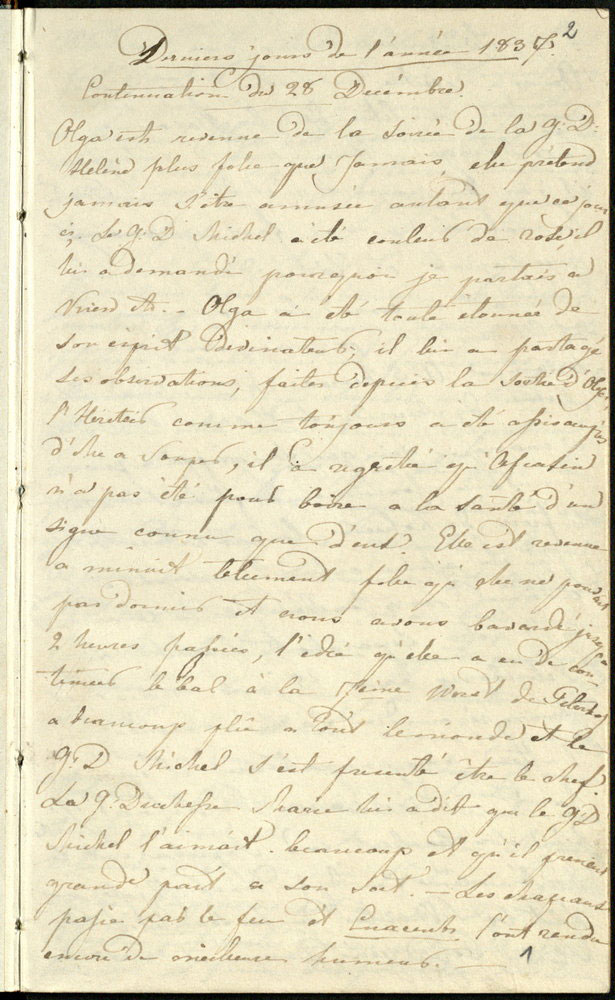 2
Derniers jours de l'année 1837.
Continuation du 28 Decémbre
Olga est revenue de la soirée de la g: D:
Helène plus folie que jamais, elle prétend
jamais s'être amusée autant que ce jour
ci, Le G: D Michel a été couleur de rose, il
lui a demandé pourquoi je partais a
- Olga a été toute étonnée de
son esprit devinateur, il lui a partagé
ses observations, faites depuis la sortie d'Olga,
l'Heretier comme toujours a été assis auprès
d'elle a souper, il a regretté qu'
n'a pas été pour boire a la santé d'un
signe connu que d'eux. Elle est revenue
a minuit telement folie qu'elle ne pouvait
pas dormir et nous avons bavardé jusqu'a
2 heures passées, l'idée qu'elle a eu de con-
tinuer le bal à la de
a beaucoup plû a tout le monde et le
G: D Michel s'est presenté être le chef.
La G: Duchesse Marie lui a dit que le G: D
Michel l'aimait beaucoup et qu'il prenait
grande part a son sort. - Les
passé par le feu et l'ont rendu
encore de meilleure humeur. -
1